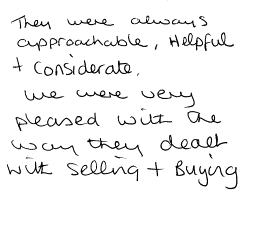 They were always
approachable, Helpful
+ Considerate.
We were very
pleased with the
way they dealt
with Selling + Buying